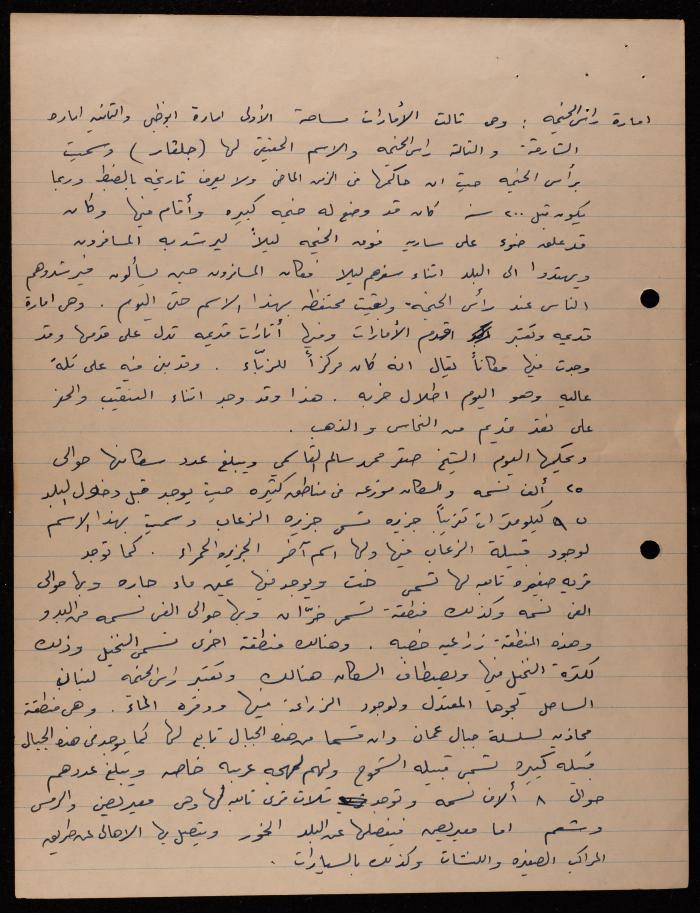 امارة رأس الخيمه : وهى ثالث الأمارات مساحة الأولى امارة ابوظبى والثانيه اماره
الشارقة والثالثة راس الخيمه والاسم الحقيقى لها (جلفار) وسميت
برأس الخيمه حيث ان حاكمها فى الزمن الماضى ولا يعرف تاريخه بالضبط وربما
يكون قبل ٢٠٠ سنه كان قد وضع له خيمه كبيره وأقام فيها وكان
قد علق ضوء على ساريه فوق الخيمه ليلاً ليرشد به المسافرون
ويهتدوا الى البلد اثناء سفرهم ليلا فكان المسافرون حين يسألون فيرشدوهم
الناس عند رأس الخيمه وبقيت محتفظه بهذا الاسم حتى اليوم . وهى امارة
قديمه وتعتبر اقدم الأمارات وفيها أثارات قديمه تدل على قدمها وقد
وجدت فيها مكاناً يقال انه كان مركزاً للزبّاء . وقد بنى فيه على تلة
عاليه وهو اليوم اطلال خربه . هذا وقد وجد اثناء التنقيب والحفر
على نقد قديم من النحاس والذهب .
ويحكمها اليوم الشيخ صقر محمد سالم القاسمى ويبلغ عدد سكانها حوالى
٢٥ ألف نسمه والسكان موزعه فى مناطق كثيره حيث يوجد قبل دخول البلد
ب ٩ كيلومترات تقريباً جزيره تسمى جزيره الزعاب وسميت بهذا الاسم
لوجود قبيلة الزعاب فيها ولها اسم آخر الجزيره الحمراء . كما توجد
قريه صغيره تابعه لها تسمى خت ويوجد فيها عين ماء حاره وبها حوالى
الفى نسمه وكذلك منطقة تسمى خرّان وبها حوالى الفى نسمه من البدو
وهذه المنطقة زراعيه خصبه . وهنالك منطقة اخرى تسمى النخيل وذلك
لكثرة النخيل فيها ويصطاف السكان هنالك وتعتبر راس الخيمه لبنان
الساحل لجوها المعتدل ولوجود الزراعه فيها ووفرة الماء . وهى منطقة
محاذيه لسلسلة جبال عمان وان قسما من هذه الجبال تابع لها كما يوجد فى هذه الجبال
قبيله كبيره تسمى قبيله الشحوح ولهم لهجه عربيه خاصه ويبلغ عددهم
حوالى ٨ ألاف نسمه وتوجد ثلاث قرى تابعه لها وهى معيريض والرمس
وشعم اما معيريض فيفصلها عن البلد الخور ويتصل بها الاهالى عن طريق
المراكب الصغيره واللنشات وكذلك بالسيارات .